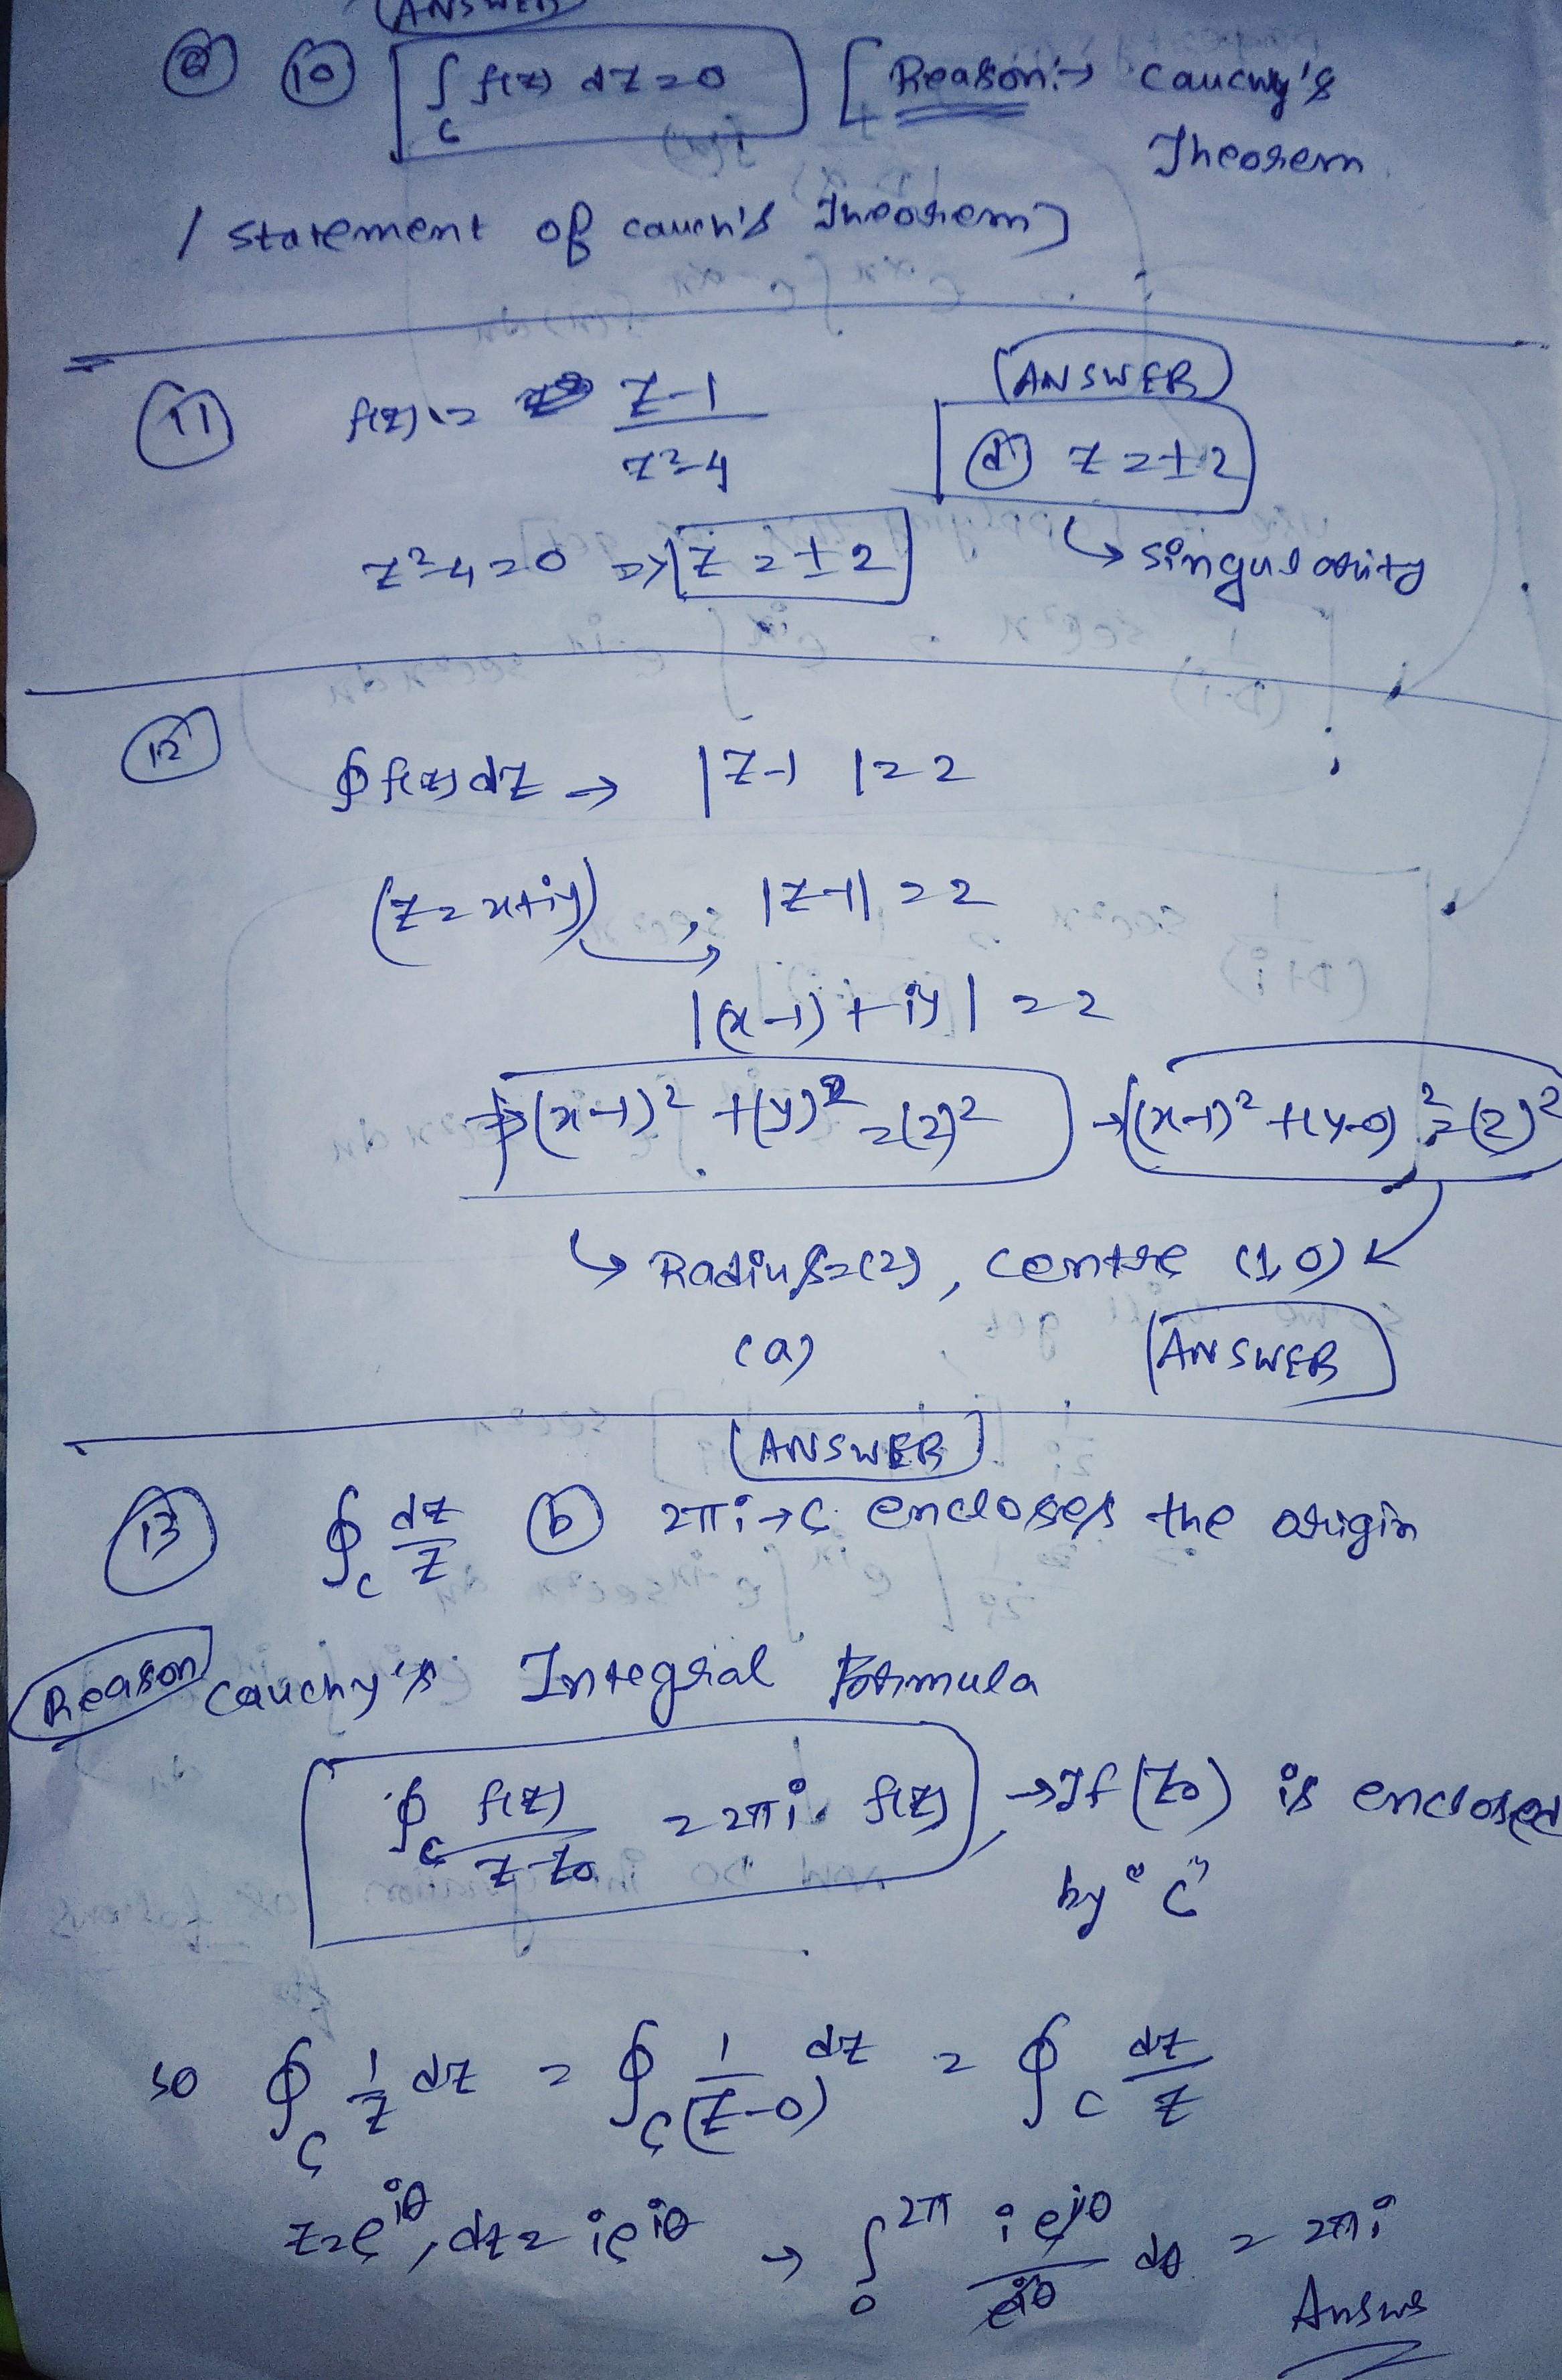 (ANSWER)
(a) (10) ∫_C f(z) dz = 0 [Reason:→ Cauchy's
Theorem
/ statement of cauch's Theorem]
(11) f(z) = z-1 / z²-4 (ANSWER)
(d) z = ±2
z²-4=0 => z = ±2 ↳ singularity
(12)
∮ f(z) dz → |z-1| = 2
(z = x+iy) ; |z-1| = 2
|(x-1) + iy| = 2
→ (x-1)² + (y)² = (2)² → (x-1)² + (y-0)² = (2)²
↳ Radius=(2), centre (1,0)
(a) (ANSWER)
(ANSWER)
(13) ∮_C dz/z (b) 2πi → C encloses the origin
Reason Cauchy's Integral Formula
∮_C f(z) / z-z₀ = 2πi. f(z) → If (z₀) is enclosed
by "C"
so ∮_C 1/z dz = ∮_C 1/(z-0) dz = ∮_C dz/z
z=e^{iθ}, dz = ie^{iθ} → ∫_0^{2π} i e^{iθ} / e^{iθ} dθ = 2πi
Answe